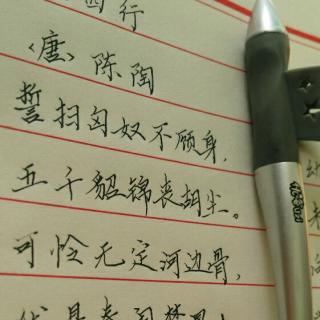 西行
〈唐〉陈陶
誓扫匈奴不顾身，
五千貂锦丧胡尘。
可怜无定河边骨，